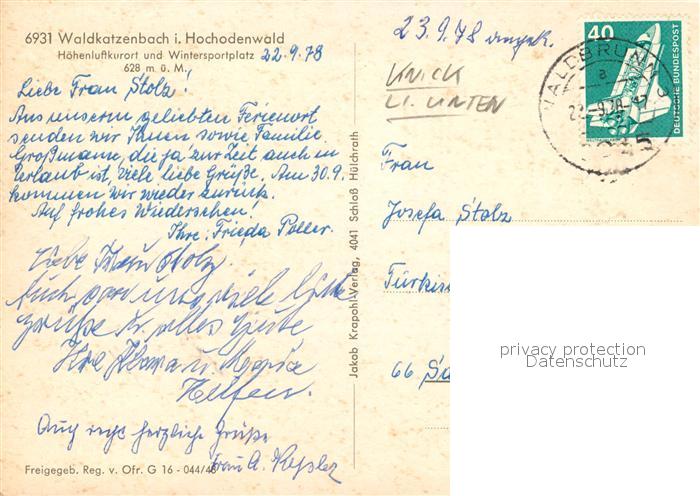 6931 Waldkatzenbach i. Hochodenwald
Höhenluftkurort und Wintersportplatz
628 m ü. M.
22.9.78
Liebe Frau Stolz!
Aus unserm geliebten Ferienort
senden wir Ihnen sowie Familie
Großmann, die ja zur Zeit auch in
Urlaub ist, viele liebe Grüße. Am 30.9.
kommen wir wieder zurück.
Auf frohes Wiedersehen!
Ihre: Frieda Poller.
Liebe Frau Stolz.
Auch von uns viele liebe
Grüße u. alles Gute
Ihre u. Maria
Auch recht herzliche Grüße
Frau A. Kessler
Freigegeb. Reg. v. Ofr. G 16 - 044/48
Jakob Krapohl-Verlag, 4041 Schloß Hülchrath
23.9.78 angek.
KNICK
LI. UNTEN
40
DEUTSCHE BUNDESPOST
WALDBRUNN
a
Frau
Josefa Stolz
Türkis
66 Sa
privacy protection
Datenschutz